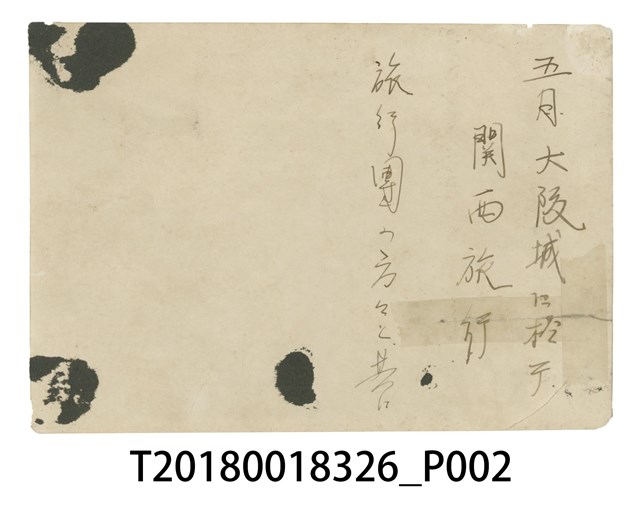 五月大阪城に於テ
関西旅行
旅行團の方々と共に
T20180018326_P002